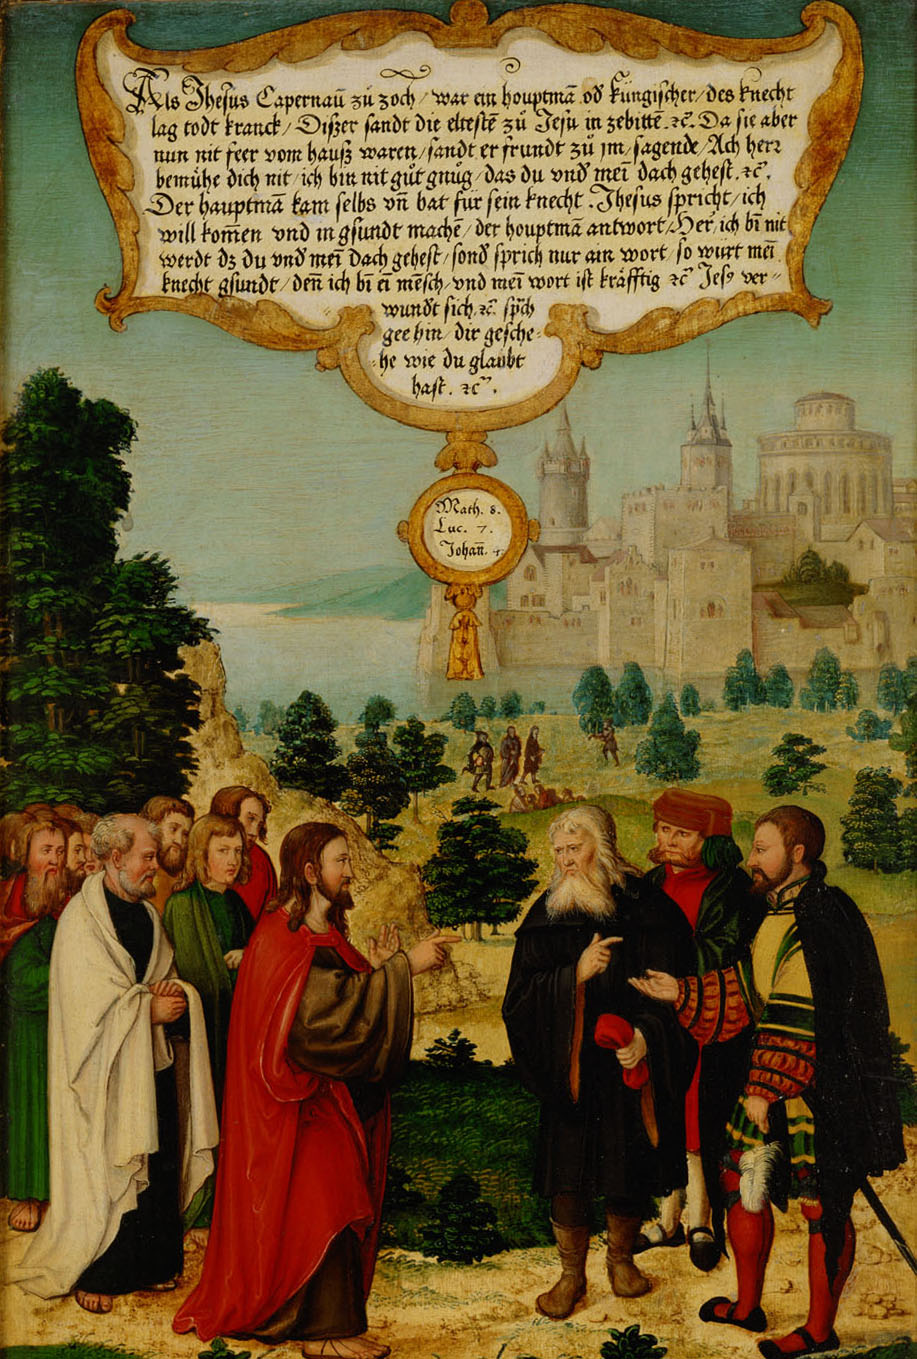 Als Jhesus Capernaū zů zoch / war ein houptmā od̄ küngischer / des knecht
lag todt kranck / Diszer sandt die elteste͂ zů Jesu in zebitte͂ .ꝛc̄. Da sie aber
nun nit feer vom hausz waren / sandt er frundt zů jm / sagende / Ach herꝛ
bemühe dich nit / ich bin nit gůt gnůg / das du vnd̄ mei͂ dach gehest .ꝛc̄.
Der hauptmā kam selbs vn̄ bat für sein knecht . Jhesus spricht / ich
will kom̄en vnd in gsundt mache͂ / der houptmā antwort / Her / ich bi͂ nit
werdt dz du vnd̄ mei͂ dach gehest / sond̄ sprich nur ain wort / so würt mei͂
knecht gsundt / den̄ ich bi͂ ei͂ me͂sch / vnd mei͂ wort ist kräfftig ꝛc̄ Jesꝰ ver-
wundt sich .ꝛc̄. sp̄ch
gee hin / dir gesche-
he wie du glaubt
hast . ꝛc̄ .
Math. 8.
Luc. 7.
Johan̄. 4.